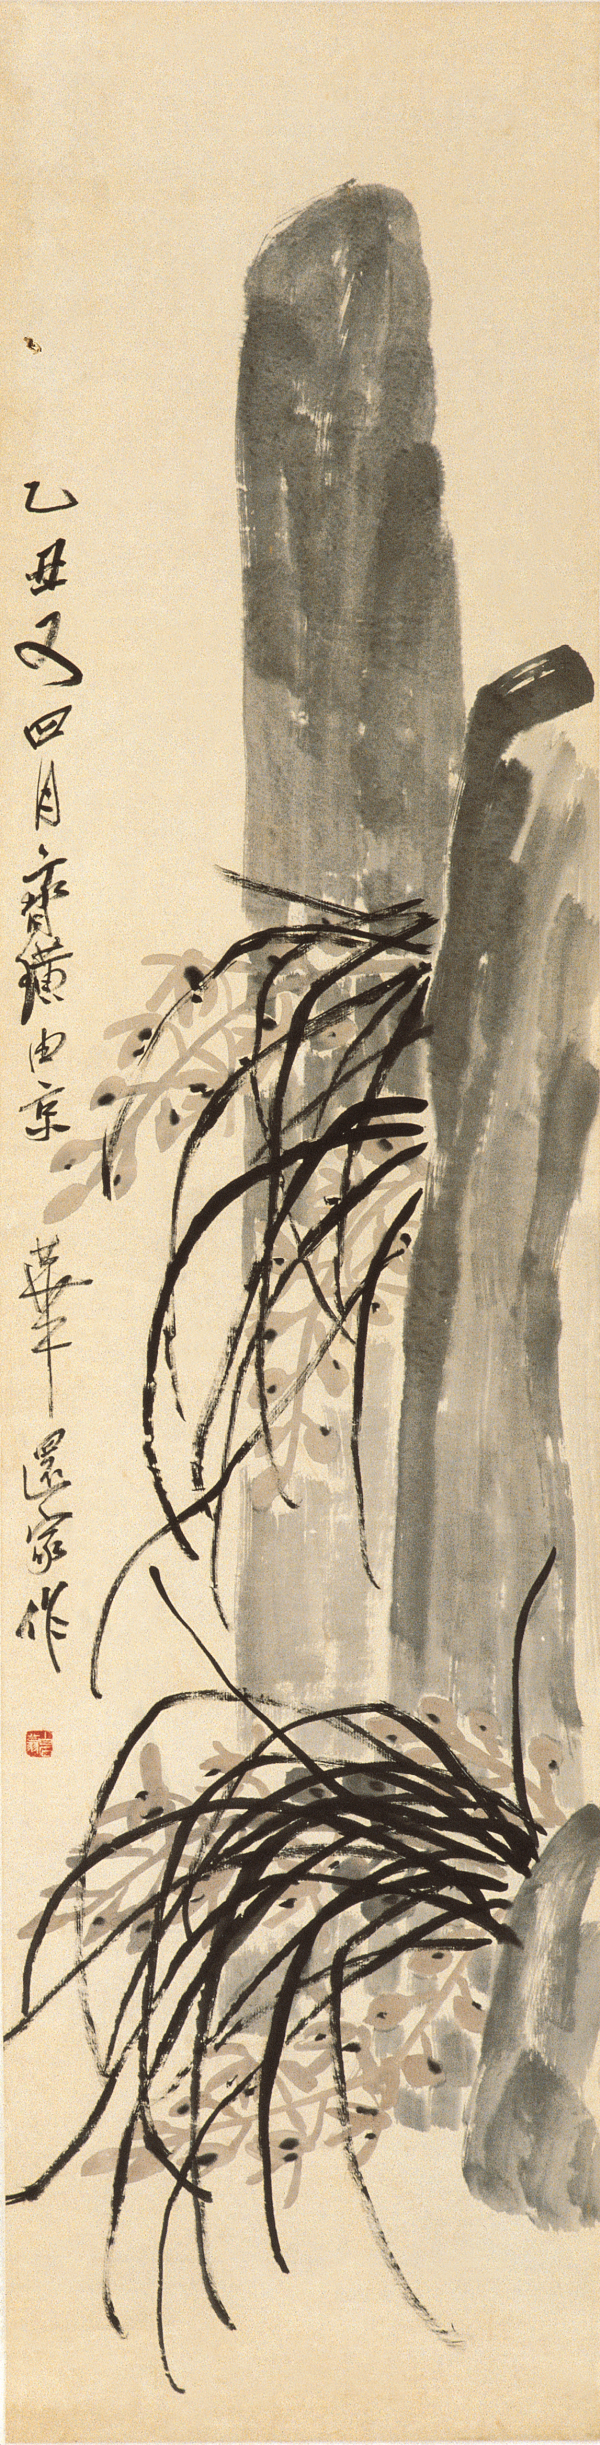 乙丑又四月齊璜由京華還家作